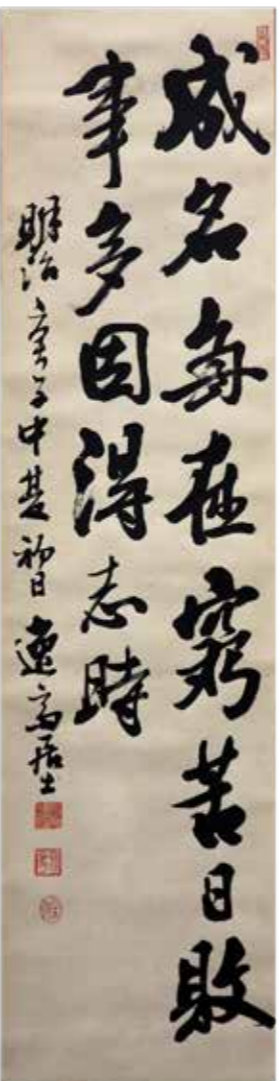 成名每在窮苦日敗
事多因得志時
明治庚子中夏初日遠高居士